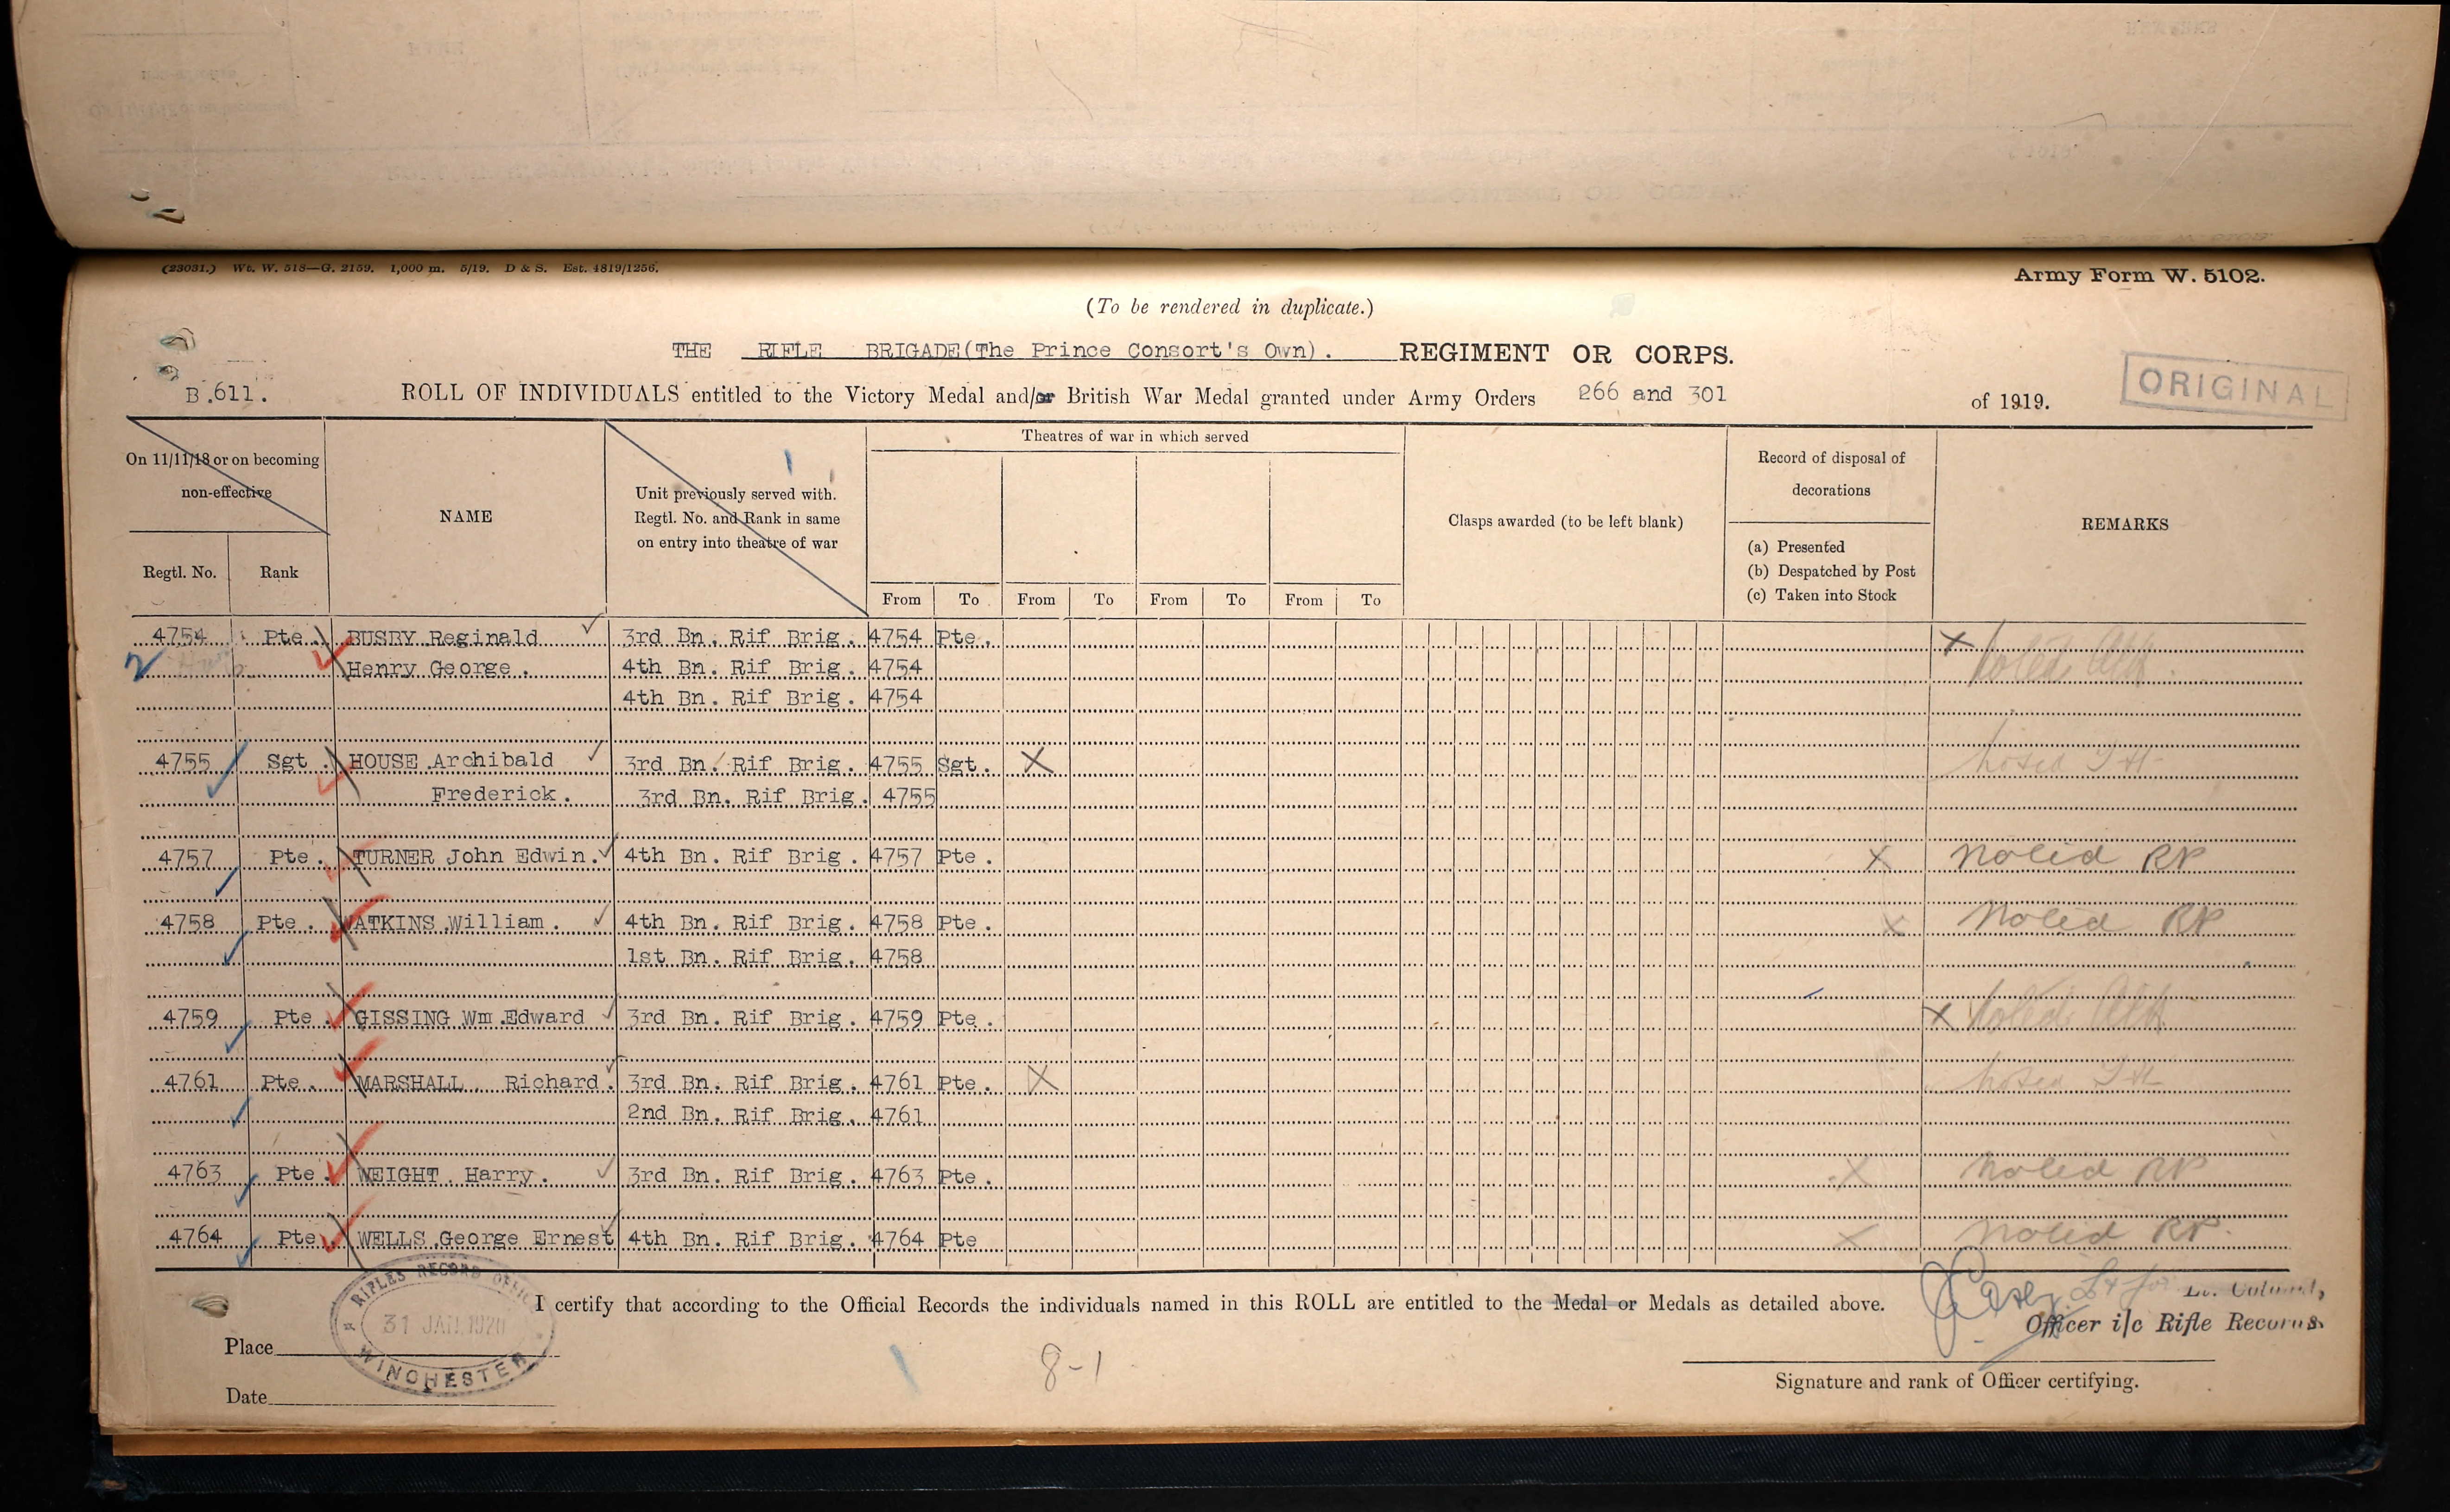 (23031.) Wt. W. 518—G. 2159. 1,000 m. 5/19. D & S. Est. 4819/1256.
Army Form W. 5102.
(To be rendered in duplicate.)
THE RIFLE BRIGADE(The Prince Consort's Own). REGIMENT OR CORPS.
B.611.
ROLL OF INDIVIDUALS entitled to the Victory Medal and/or British War Medal granted under Army Orders 266 and 301 of 1919.
ORIGINAL
On 11/11/18 or on becoming
non-effective
Regtl. No.
Rank
NAME
Unit previously served with.
Regtl. No. and Rank in same
on entry into theatre of war
Theatres of war in which served
From To From To From To From To
Clasps awarded (to be left blank)
Record of disposal of
decorations
(a) Presented
(b) Despatched by Post
(c) Taken into Stock
REMARKS
4754 Pte. BUSBY Reginald 3rd Bn. Rif Brig. 4754 Pte. X Noted
2 Henry George. 4th Bn. Rif Brig. 4754
4th Bn. Rif Brig. 4754
4755 Sgt. HOUSE Archibald 3rd Bn. Rif Brig. 4755 Sgt. X Noted
Frederick. 3rd Bn. Rif Brig. 4755
4757 Pte. TURNER John Edwin. 4th Bn. Rif Brig. 4757 Pte. X Noted RP
4758 Pte. WATKINS William. 4th Bn. Rif Brig. 4758 Pte. X Noted RP
1st Bn. Rif Brig. 4758
4759 Pte. GISSING Wm.Edward 3rd Bn. Rif Brig. 4759 Pte. X Noted
4761 Pte. MARSHALL Richard. 3rd Bn. Rif Brig. 4761 Pte. X Noted
2nd Bn. Rif Brig. 4761
4763 Pte. WEIGHT Harry. 3rd Bn. Rif Brig. 4763 Pte. X Noted RP
4764 Pte WELLS George Ernest 4th Bn. Rif Brig. 4764 Pte X Noted RP.
RIFLES RECORD OFFICE
31 JAN 1920
WINCHESTER
I certify that according to the Official Records the individuals named in this ROLL are entitled to the Medal or Medals as detailed above.
Lt for Lt. Colonel,
Officer i/c Rifle Records.
Place
8-1
Signature and rank of Officer certifying.
Date